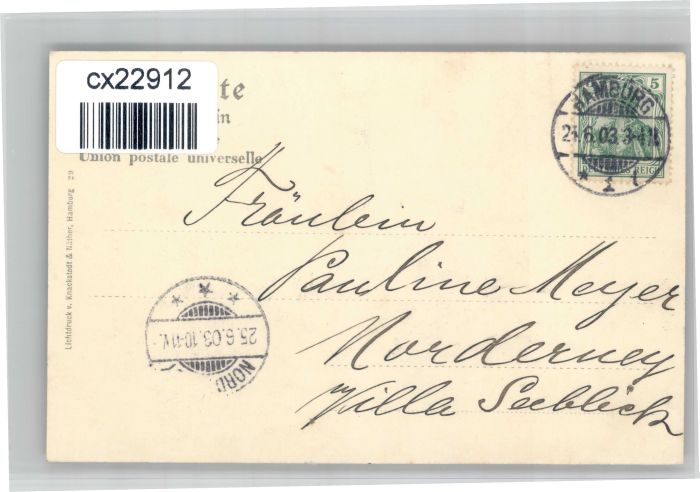 cx22912
te
in
Union postale universelle
Lichtdruck v. Knackstedt & Näther, Hamburg 29
5
REICH
HAMBURG
6.03. 3-4
* 1 t
Fräulein
Pauline Meyer
Norderney
Villa Seeblick
25.6.03.10-11V.
NORD